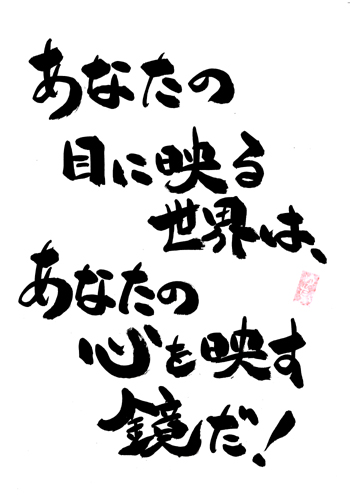 あなたの
目に映る
世界は、
あなたの
心を映す
鏡だ！